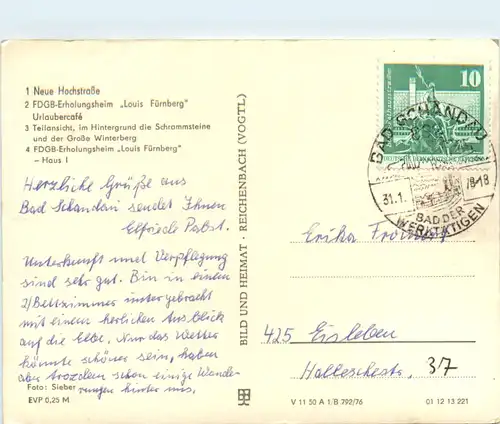 1 Neue Hochstraße
2 FDGB-Erholungsheim „Louis Fürnberg"
Urlaubercafé
3 Teilansicht, im Hintergrund die Schrammsteine
und der Große Winterberg
4 FDGB-Erholungsheim „Louis Fürnberg"
– Haus I
Herzliche Grüße aus
Bad Schandau sendet Ihnen
Elfriede Pabst.
Unterkunft und Verpflegung
sind sehr gut. Bin in einen
2/Bettzimmer untergebracht
mit einem herlichen Ausblick
auf die Elbe. Nur das Wetter
könnte schöner sein, haben
aber trozdem schon einige Wander
rungen hinter uns.
Foto: Sieber
EVP 0,25 M
BILD UND HEIMAT · REICHENBACH (VOGTL)
10
DEUTSCHE DEMOKRATISCHE REPUBLIK
BAD SCHANDAU
31.1. 78-18
BAD DER
WERKTÄTIGEN
Erika
425 Eisleben
Halleschestr. 37
V 11 50 A 1/B 792/76 01 12 13 221